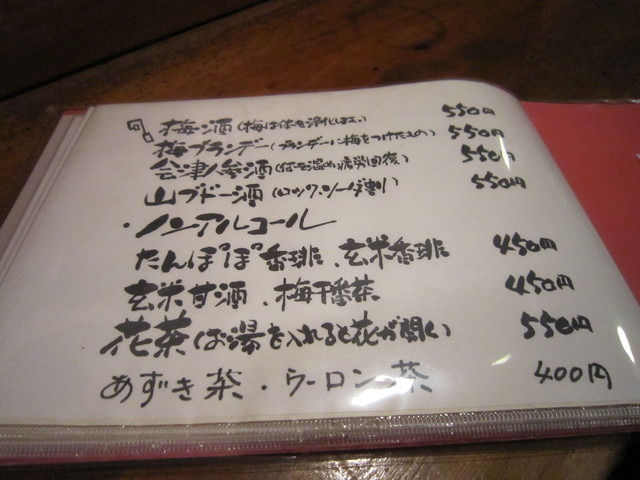 梅酒(梅は体を浄化します) 550円
梅ブランデー(ブランデーに梅をつけたもの) 550円
会津人参酒(体を温め疲労回復) 550円
山ブドー酒(ロック、ソーダ割り) 550円
・ノンアルコール
たんぽぽ香琲、玄米香琲 450円
玄米甘酒、梅干番茶 450円
花茶(お湯を入れると花が開く) 550円
あずき茶・ウーロン茶 400円